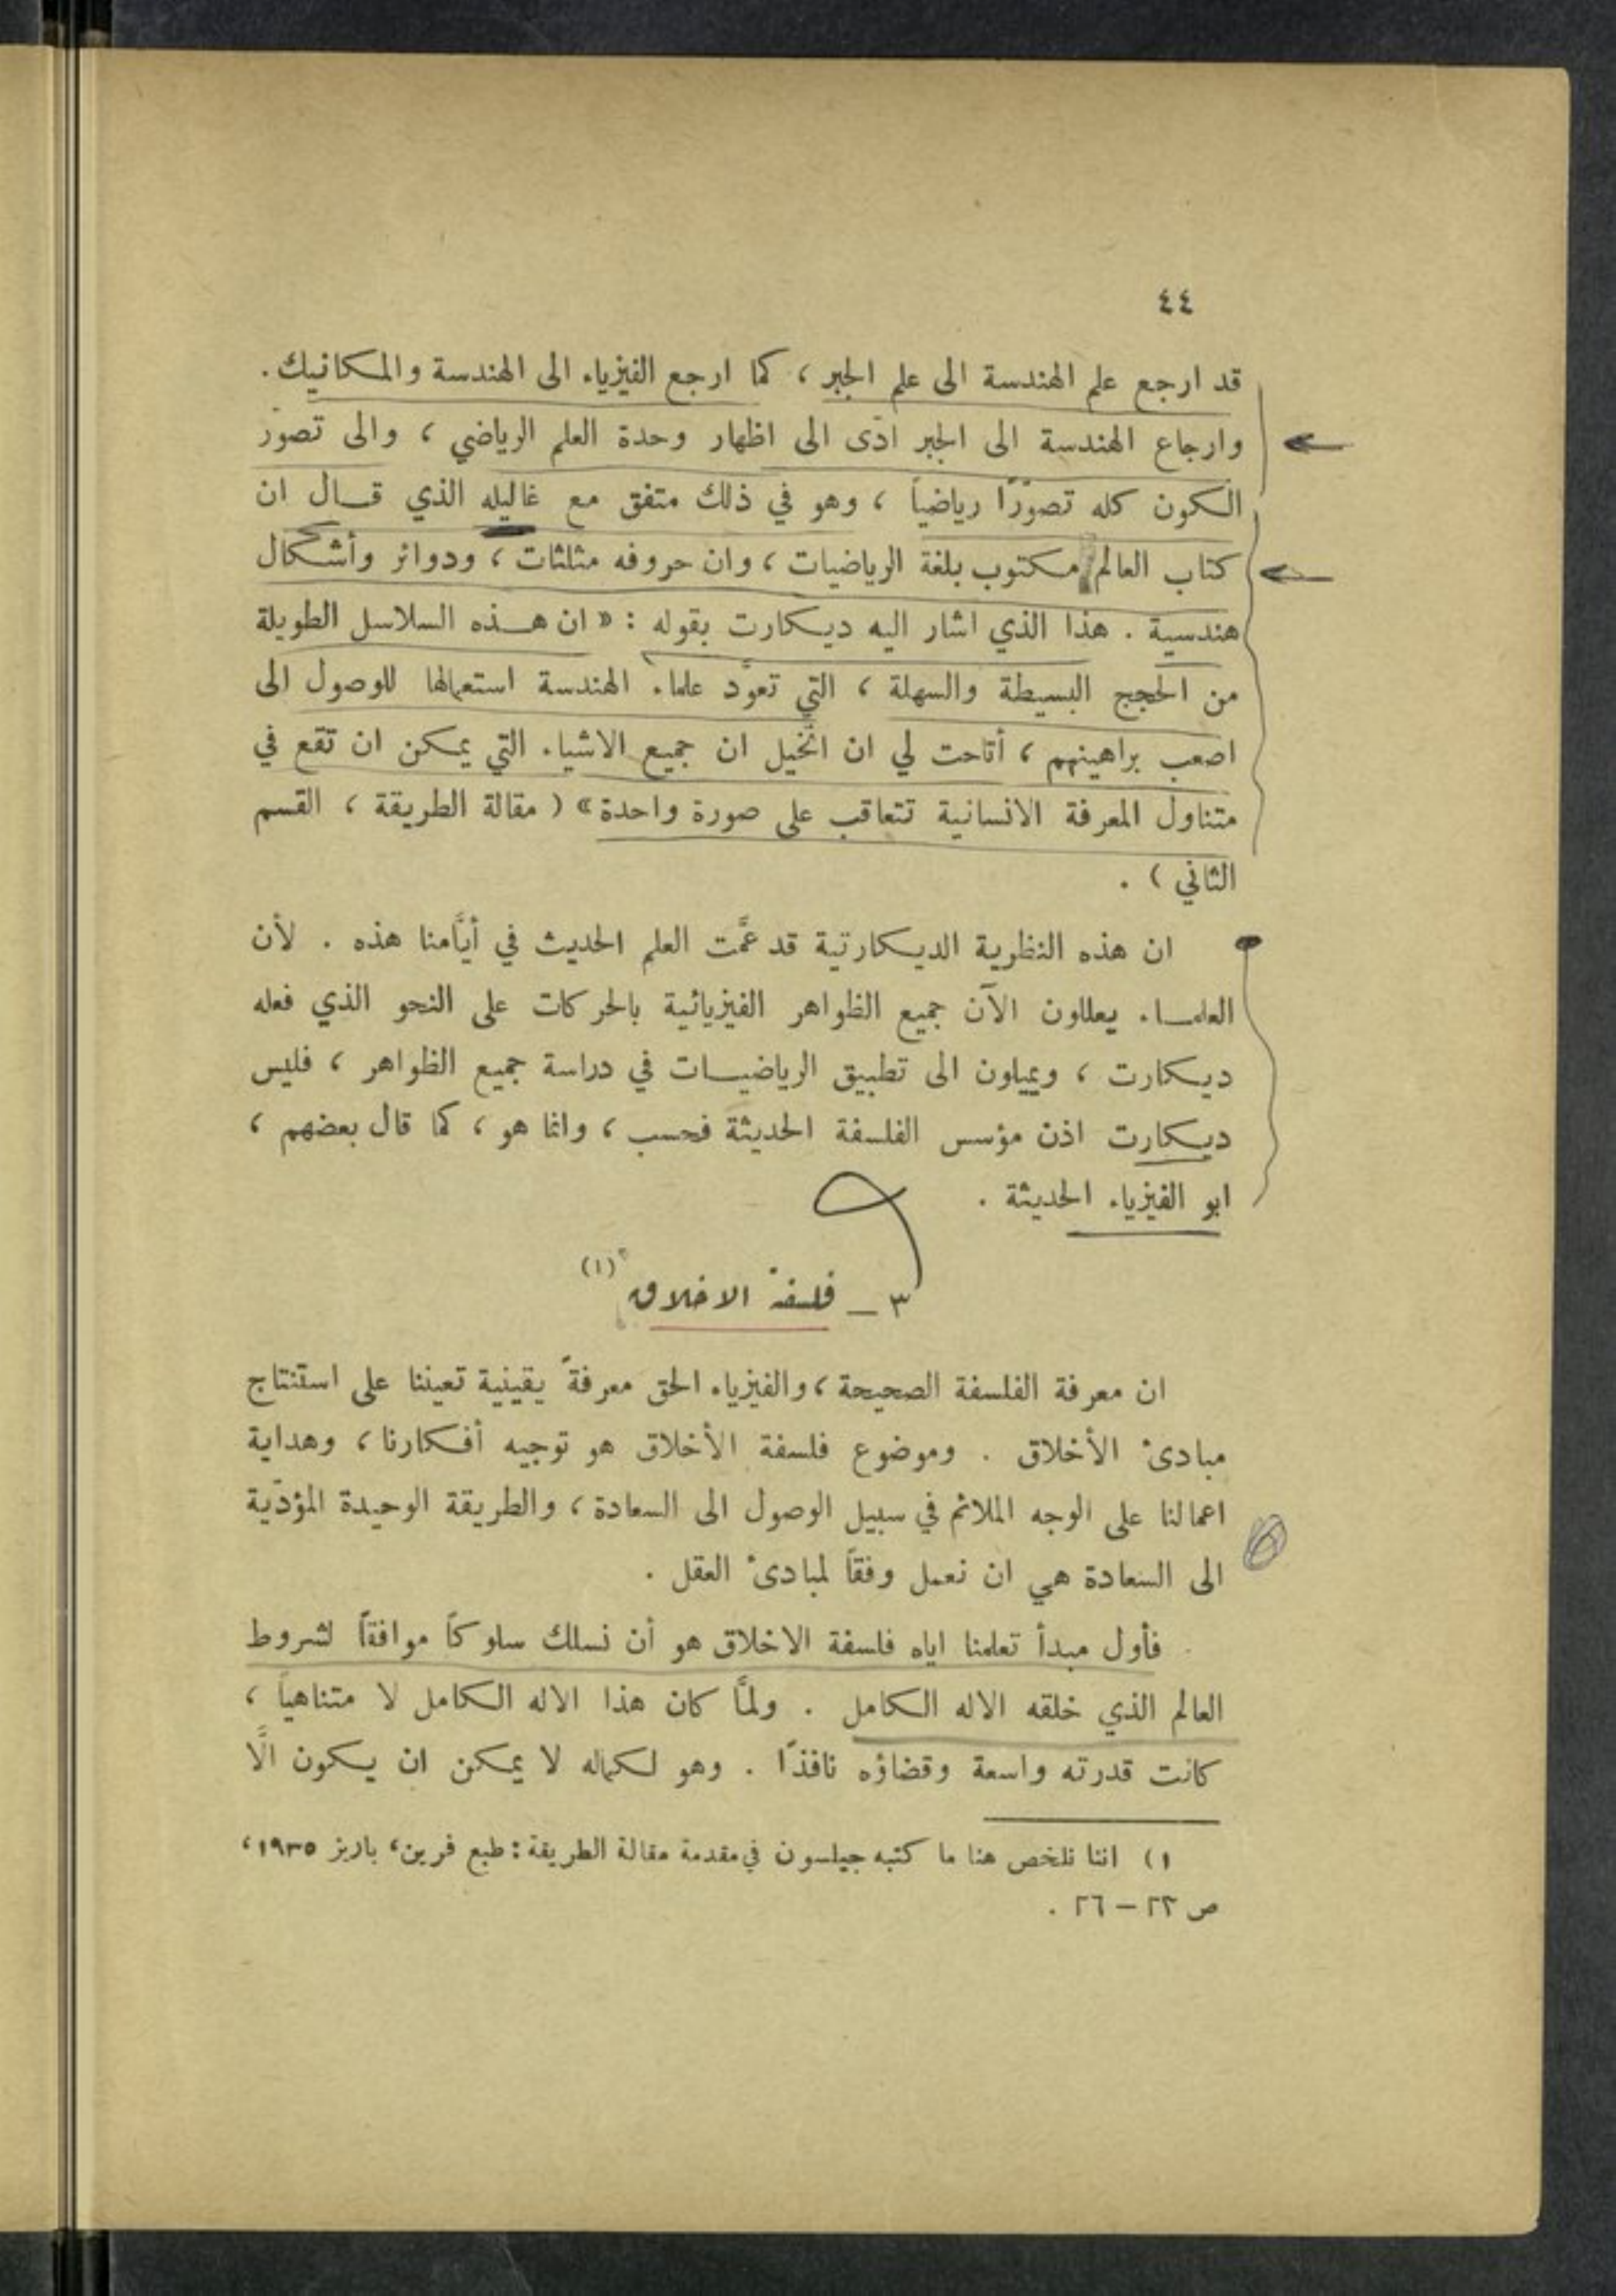 ٤٤
قد ارجع علم الهندسة الى علم الجبر ، كما ارجع الفيزياء الى الهندسة والمكانيك .
وارجاع الهندسة الى الجبر ادّى الى اظهار وحدة العلم الرياضي ، والى تصوّر
الكون كله تصوّرًا رياضياً ، وهو في ذلك متفق مع غاليله الذي قال ان
كتاب العالم مكتوب بلغة الرياضيات ، وان حروفه مثلثات ، ودوائر وأشكال
هندسية . هذا الذي اشار اليه ديكارت بقوله : « ان هذه السلاسل الطويلة
من الحجج البسيطة والسهلة ، التي تعوَّد علماء الهندسة استعمالها للوصول الى
اصعب براهينهم ، أتاحت لي ان اتخيَّل ان جميع الاشياء التي يمكن ان تقع في
متناول المعرفة الانسانية تتعاقب على صورة واحدة » ( مقالة الطريقة ، القسم
الثاني ) .
ان هذه النظرية الديكارتية قد عمَّت العلم الحديث في أيَّامنا هذه . لأن
العلماء يعللون الآن جميع الظواهر الفيزيائية بالحركات على النحو الذي فعله
ديكارت ، ويميلون الى تطبيق الرياضيات في دراسة جميع الظواهر ، فليس
ديكارت اذن مؤسس الفلسفة الحديثة فحسب ، وانما هو ، كما قال بعضهم ،
ابو الفيزياء الحديثة .
٣ – فلسفة الاخلاق (١)
ان معرفة الفلسفة الصحيحة ، والفيزياء الحق معرفةً يقينية تعيننا على استنتاج
مبادئ الأخلاق . وموضوع فلسفة الأخلاق هو توجيه أفكارنا ، وهداية
اعمالنا على الوجه الملائم في سبيل الوصول الى السعادة ، والطريقة الوحيدة المؤدّية
الى السعادة هي ان نعمل وفقاً لمبادئ العقل .
فأول مبدأ تعلمنا اياه فلسفة الاخلاق هو أن نسلك سلوكاً موافقاً لشروط
العالم الذي خلقه الاله الكامل . ولمَّا كان هذا الاله الكامل لا متناهياً ،
كانت قدرته واسعة وقضاؤه نافذًا . وهو لكماله لا يمكن ان يكون الَّا
١) اننا نلخص هنا ما كتبه جيلسون في مقدمة مقالة الطريقة : طبع فرين ، باريز ١٩٣٥ ،
ص ٢٢ – ٢٦ .